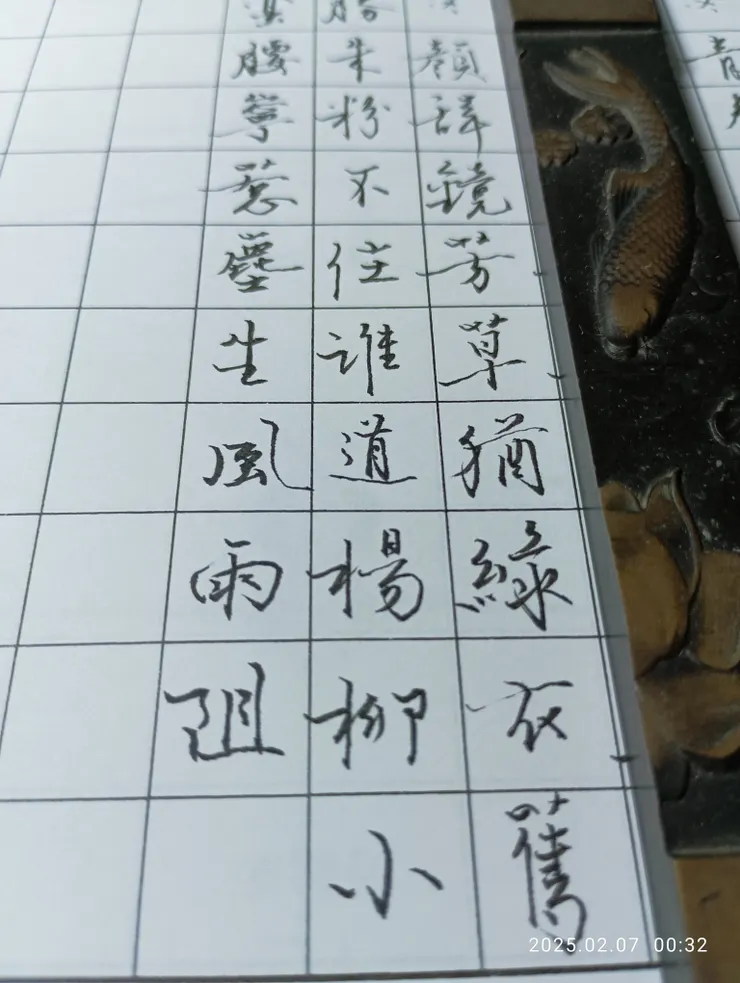 顏辭鏡芳草猶綠衣舊
朱粉不住誰道楊柳小
腰寧惹塵生風雨阻
2025.02.07 00:32